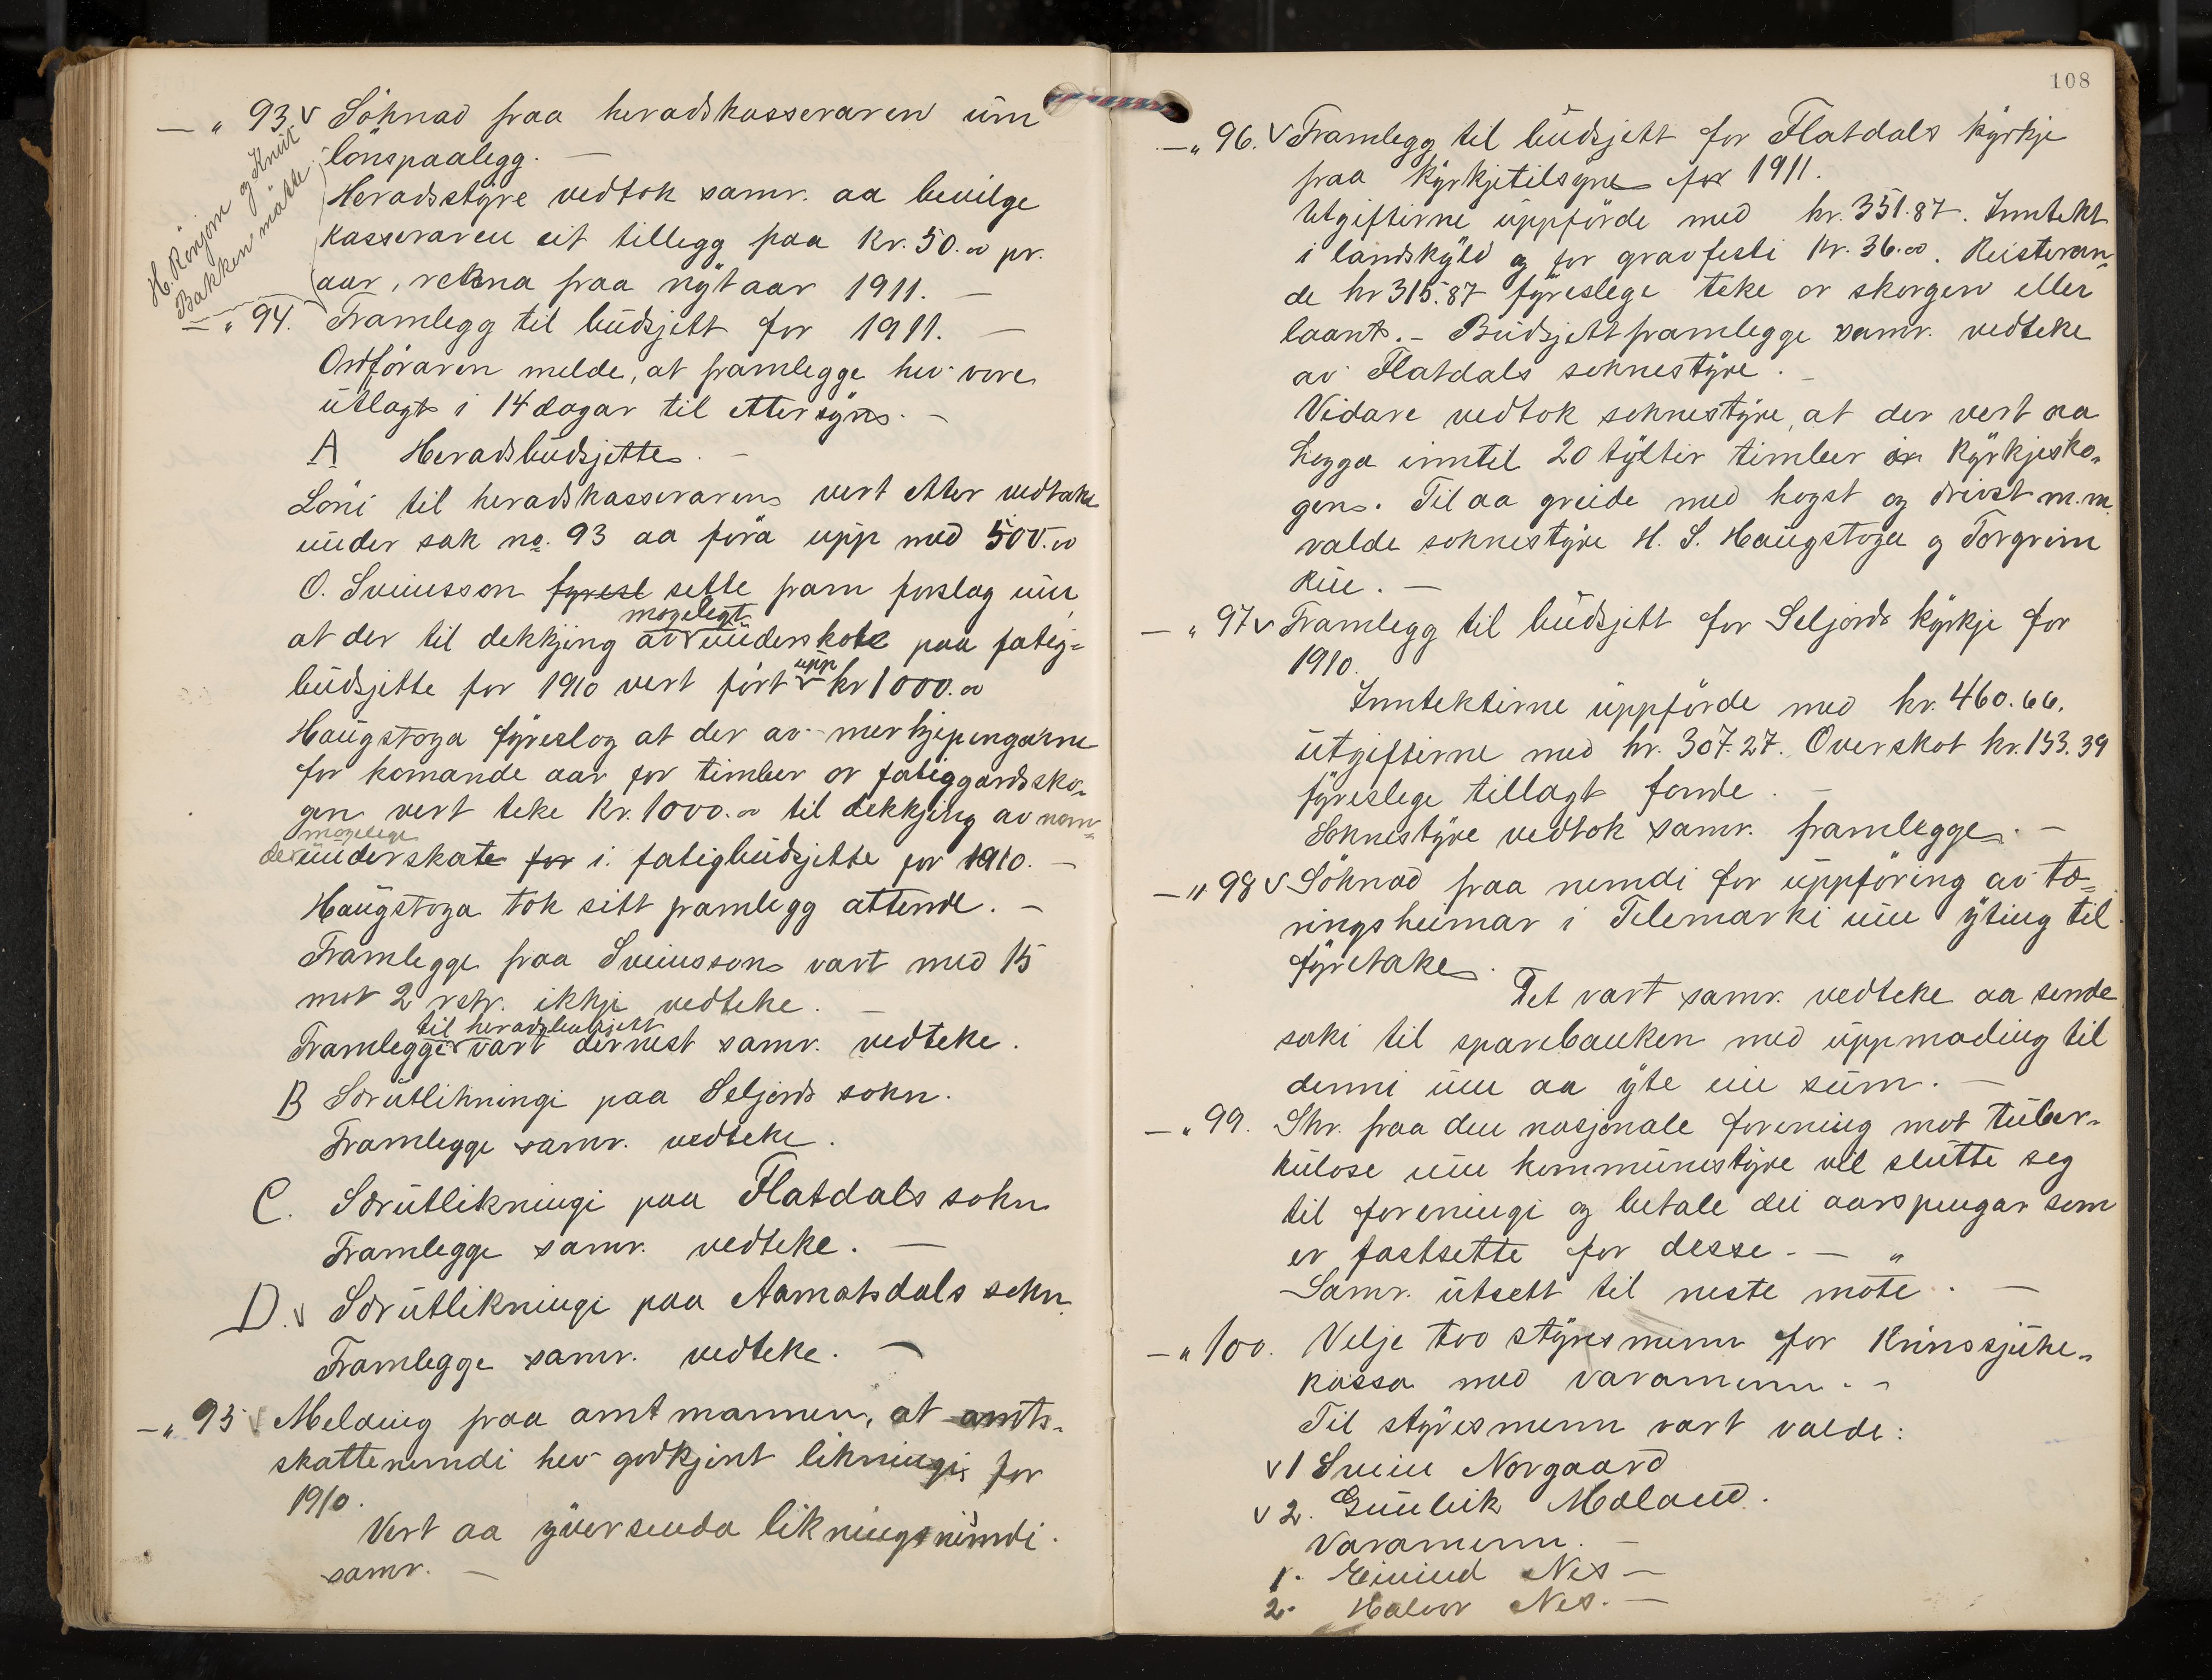 — " 93 v Söknad fraa heradskasseraren um
lönspaalegg. —
H. Rönjom og Knut
Bakken mötte
Heradsstyre vedtok samr. aa bevilge
kasseraren eit tillegg paa Kr. 50.00 pr.
aar, rekna fraa nytaar 1911. —
— " 94. Framlegg til budsjett for 1911. —
Ordföraren melde, at framlegge hev vore
utlagt i 14 dagar til ettersyns. —
A Heradsbudsjette. —
Löni til heradskasseraren vert etter vedtake
under sak no. 93 aa föra upp med 500.00
O. Sveinsson fyresl sette fram forslag um,
mogelegt
at der til dekkjing av underskot paa fatig=
upp
budsjette for 1910 vert fört kr 1000.00
Haugstoga fyreslog at der av meirkjepengarne
for komande aar for timber or fatiggardssko-
gen vert teke Kr. 1000.00 til dekkjing av
mogelege
underskate for i fatigbudsjette for 1910. —
Haugstoga tok sitt framlegg attende. —
Framlegge fraa Sveinsson vart med 15
mot 2 rstr. ikkje vedteke. —
til heradsbudsjett
Framlegge vart dernest samr. vedteke.
B Særutlikningi paa Seljords sokn.
Framlegge samr. vedteke.
C. Særutlikningi paa Flatdals sokn
Framlegge samr. vedteke. —
D. v Særutlikningi paa Aamotsdals sokn
Framlegge samr. vedteke. —
— " 95 v Melding fraa amtmannen, at amts-
skattenemdi hev godkjent likningi for
1910.
Vert aa yversenda likningsnemdi.
samr. —
108
— " 96. v Framlegg til budsjett for Flatdals kyrkje
fraa kyrkjetilsyne for 1911.
Utgiftirne uppförde med kr. 351.87. Inntekt
i landskyld og for gravfesti Kr. 36.00. Reisteran-
de kr 315.87 fyreslege teke or skogen eller
laant. — Budsjettframlegge samr. vedteke
av Flatdals soknestyre. —
Vidare vedtok soknestyre, at der vert aa
hogga inntil 20 tylfter timber or kyrkjesko-
gen. Til aa greide med hogst og drivst m.m.
valde soknestyre H. S. Haugstoga og Torgrim
Rue. —
— " 97 v Framlegg til budsjett for Seljords kyrkje for
1910.
Inntektirne uppförde med kr. 460.66.
utgiftirne med kr. 307.27. Overskot kr. 153.39
fyreslege tillagt fonde. —
Soknestyre vedtok samr. framlegge. —
— " 98 v Söknad fraa nemdi for uppföring av tæ=
ringsheimar i Telemarki um yting til
fyretake.
Det vart samr. vedteke aa sende
saki til sparebanken med uppmoding til
denni um aa yte ein sum. —
— " 99. Skr. fraa den nasjonale forening mot tuber-
kulose um kommunestyre vil slutte seg
til foreningi og betale dei aarspengar som
er fastsette for desse. — "
Samr. utsett til neste möte. —
— " 100. Velje tvo styresmenn for Krinssjuke-
kassa med varamenn. —
Til styresmenn vart valde:
v 1 Svein Norgaard
v 2. Gunleik Moland.
Varamenn. —
1. Eivind Nes —
2. Halvor Nes. —